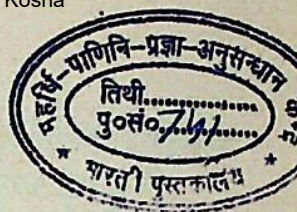 Kosha
महर्षि-पाणिनि-प्रज्ञा-अनुसन्धान
तिथी..............
पु०सं०741..........
* भारती पुस्तकालय *